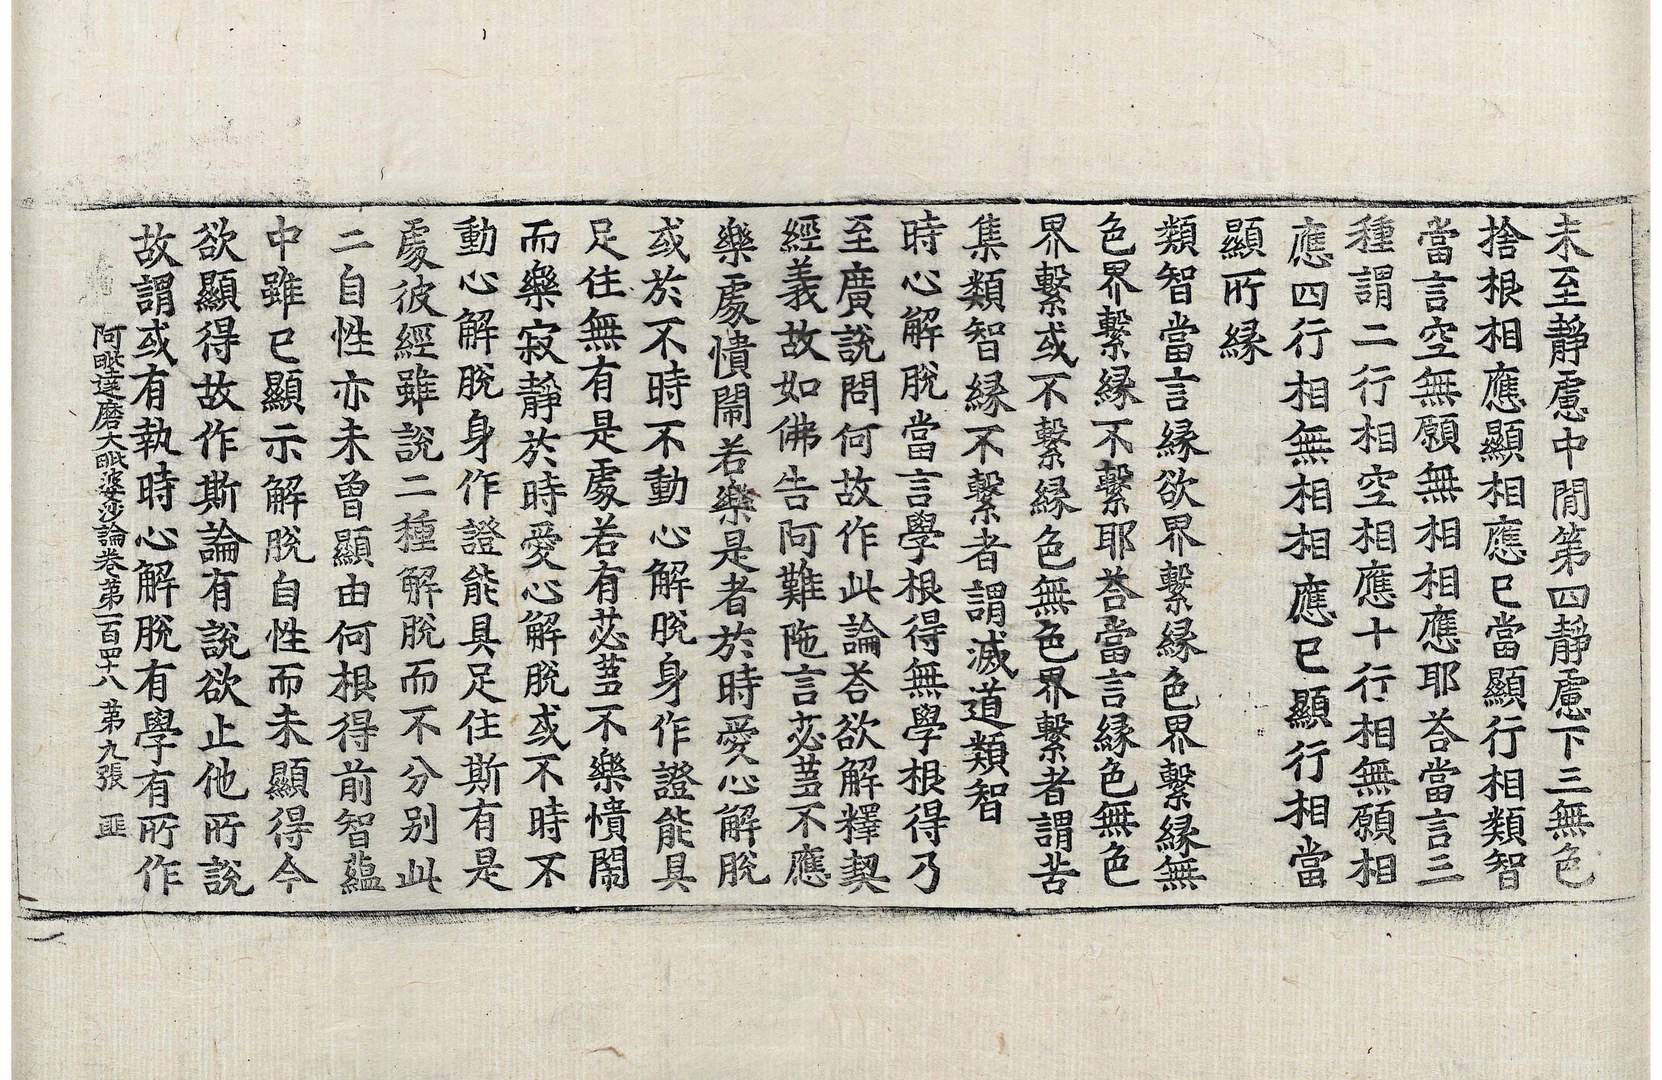 未至靜慮中閒第四靜慮下三無色
捨根相應顯相應已當顯行相類智
當言空無願無相相應耶荅當言三
種謂二行相空相應十行相無願相
應四行相無相相應已顯行相當
顯所緣
類智當言緣欲界繫緣色界繫緣無
色界繫緣不繫耶荅當言緣色無色
界繫或不繫緣色無色界繫者謂苦
集類智緣不繫者謂滅道類智
時心解脫當言學根得無學根得乃
至廣說問何故作此論荅欲解釋契
經義故如佛告阿難陁言苾蒭不應
樂處憒閙若樂是者於時愛心解脫
或於不時不動心解脫身作證能具
足住無有是處若有苾蒭不樂憒閙
而樂寂靜於時愛心解脫或不時不
動心解脫身作證能具足住斯有是
處彼經雖說二種解脫而不分別此
二自性亦未曾顯由何根得前智蘊
中雖已顯示解脫自性而未顯得今
欲顯得故作斯論有說欲止他所說
故謂或有執時心解脫有學有所作
阿毗達磨大毗婆沙論卷第一百四十八 第九張 匪